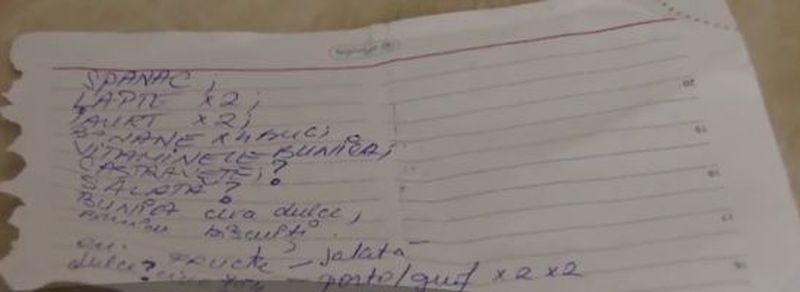 SPANAC;
LAPTE x2;
IAURT x2;
BANANE x4 BUC;
VITAMINELE BUNICA;
CASTRAVETE;?
SALATĂ?
BUNICA ceva dulce,
biscuiți
FRUCTE – salată
dulce? x2 x2
20
19
18
17
16